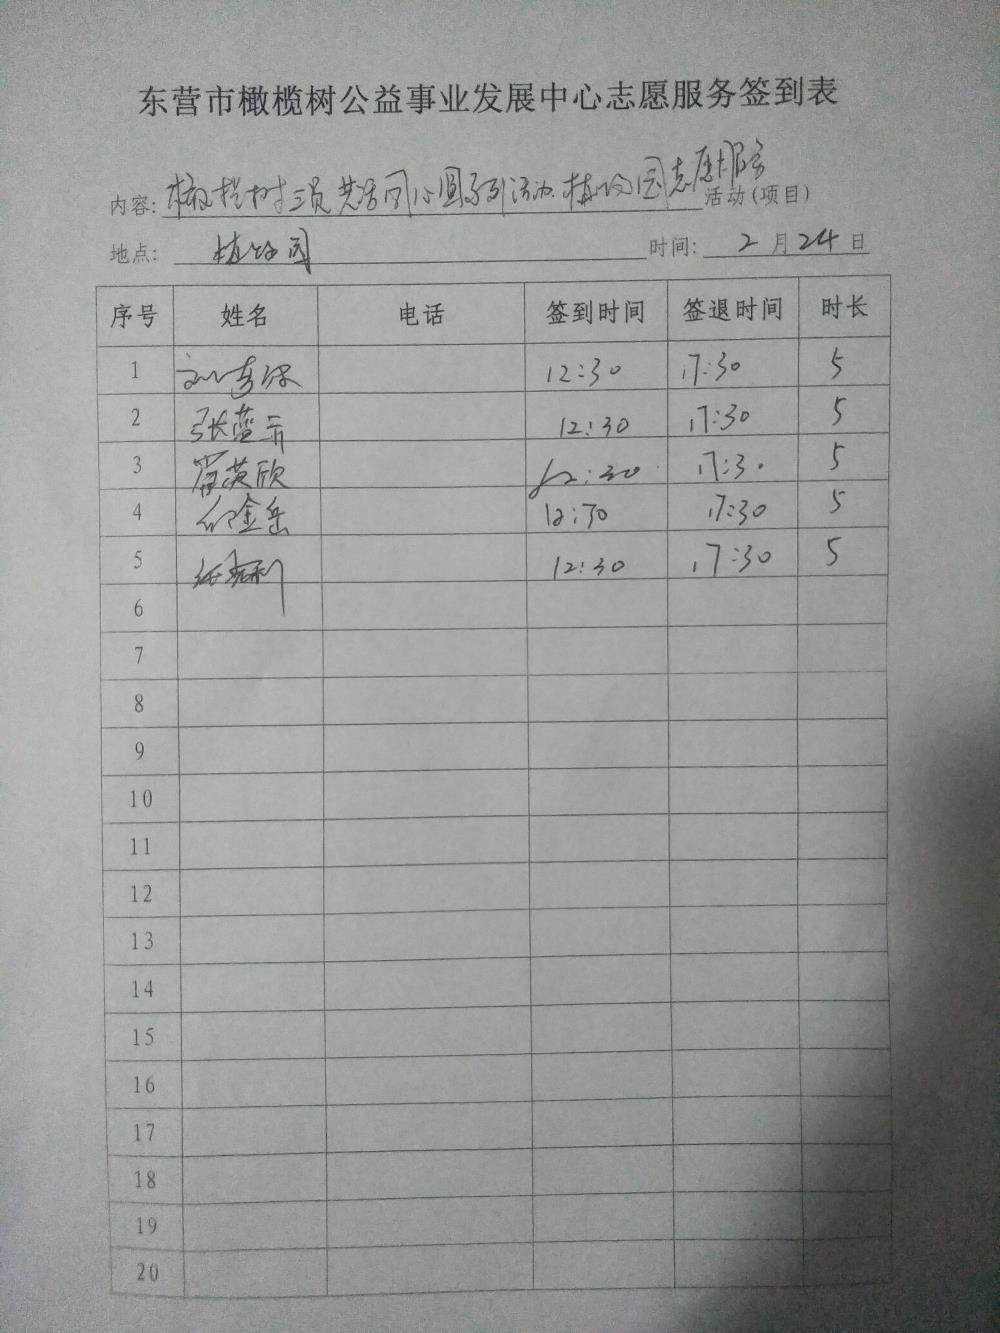 东营市橄榄树公益事业发展中心志愿服务签到表
内容: 橄榄树 同心圆系列活动 植物园志愿服务 活动(项目)
地点: 植物园 时间: 2 月 24 日
序号 姓名 电话 签到时间 签退时间 时长
1 12:30 17:30 5
2 张蓝 12:30 17:30 5
3 英欣 12:30 17:30 5
4 金岳 12:30 17:30 5
5 12:30 17:30 5
6
7
8
9
10
11
12
13
14
15
16
17
18
19
20